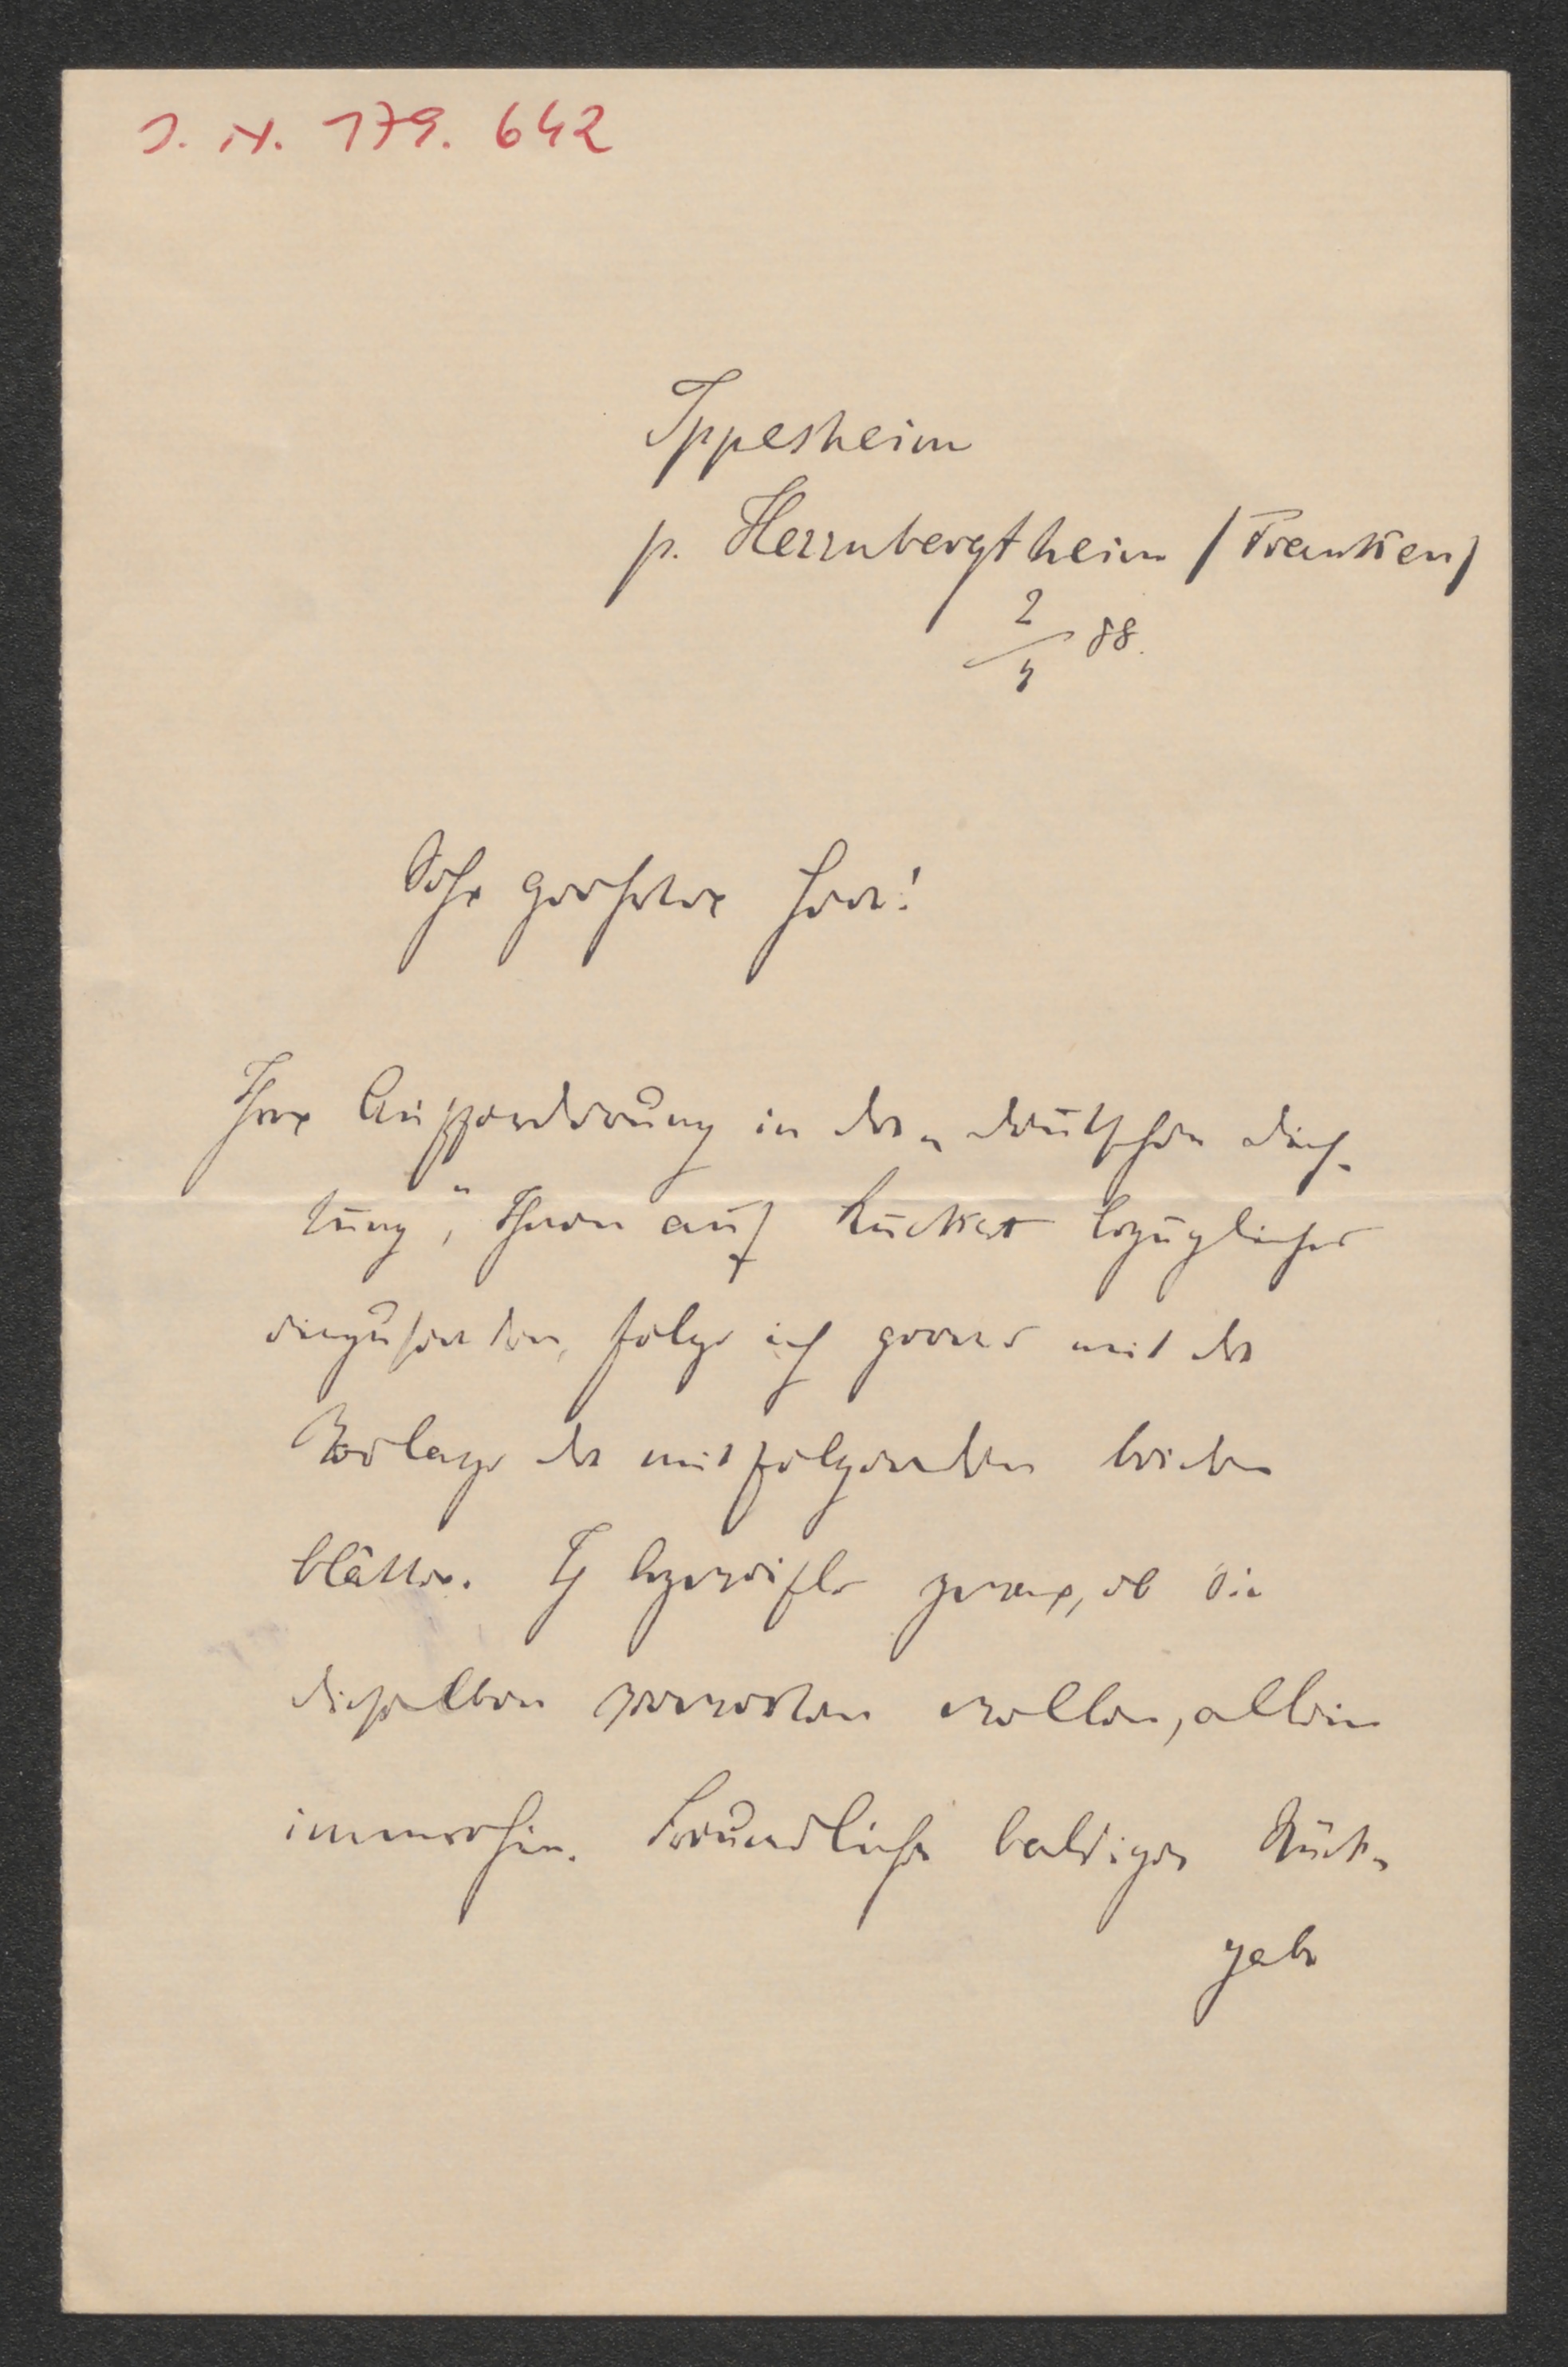 J. N. 179. 642
Ippesheim
p. Herrnbergtheim /Franken/
2/4 88.
Sehr geehrter Herr!
Ihrer Aufforderung in der „deutschen Dich-
tung“, Ihnen auf Rückert bezügliches
einzusenden, folge ich gerne mit der
Vorlage der mitfolgenden beiden
Blätter. Ich bezweifle zwar, ob Sie
dieselben verwerten wollen, allein
immerhin. Freundlicher baldiger Rück-
gabe